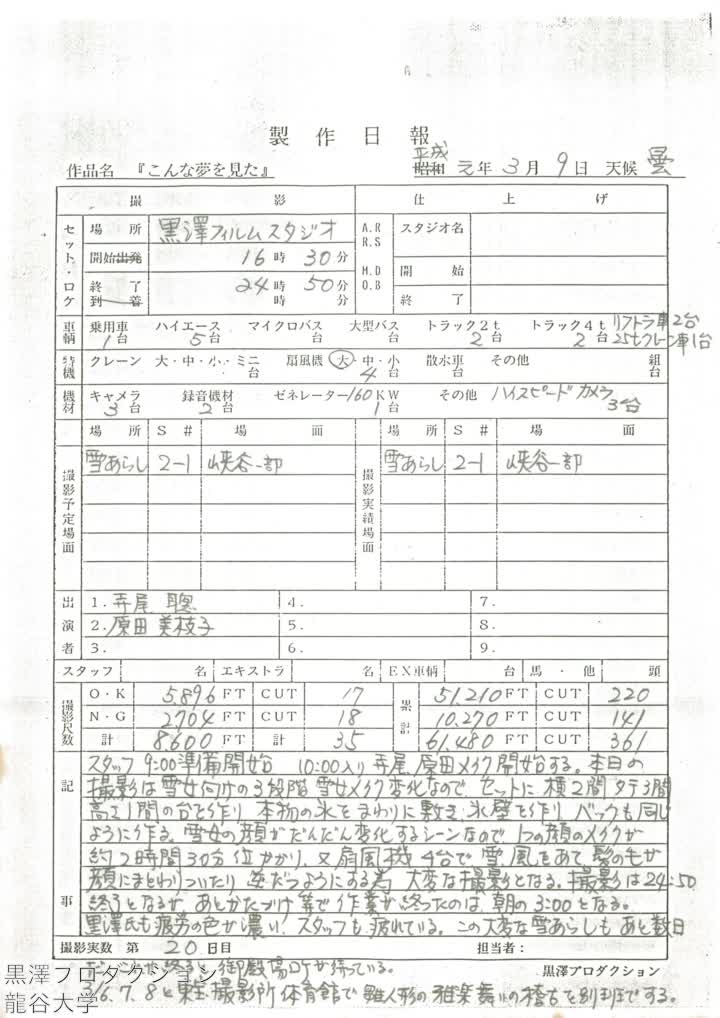 製作日報
作品名 『こんな夢を見た』 昭和 平成 元年 3月 9日 天候 曇
撮影 仕上げ
セット・ロケ 場所 黒澤フィルムスタジオ A.R R.S スタジオ名
開始 出発 16時 30分 M.D D.B 開始
終了 到着 24時 50分 時 分 終了
車輌 乗用車 1台 ハイエース 5台 マイクロバス 大型バス トラック2t 2台 トラック4t 2台 リフトラ車2台 25tクレーン車1台
特機 クレーン 大・中・小・ミニ 台 扇風機 大・中・小 4台 散水車 台 その他 組 台
機材 キャメラ 3台 録音機材 2台 ゼネレーター160KW 1台 その他 ハイスピードカメラ 3台
場所 S# 場面 場所 S# 場面
撮影予定場面 雪あらし 2-1 峡谷一部 撮影実績場面 雪あらし 2-1 峡谷一部
出演者 1. 寺尾 聰 4. 7.
2. 原田 美枝子 5. 8.
3. 6. 9.
スタッフ 名 エキストラ 名 EX車輌 台 馬・他 頭
撮影尺数 O・K 5,896 FT CUT 17 累計 51,210 FT CUT 220
N・G 2704 FT CUT 18 10,270 FT CUT 141
計 8,600 FT 計 35 61,480 FT CUT 361
記事
スタッフ 9:00準備開始 10:00入り 寺尾、原田メイク開始する。本日の
撮影は雪女向けの3段階 雪女メイク変化なので セットに 横2間 タテ3間
高さ1間の台を作り 本物の氷をまわりに敷き、氷壁を作り バックも同じ
ように作る。雪女の顔がだんだん変化するシーンなので 1つの顔のメイクが
約2時間30分位かかり、又 扇風機 4台で 雪、風をあて 髪の毛が
顔にまとわりついたり 逆だつようにする為 大変な撮影となる。撮影は24:50
終了となるが、あとかたづけ等で作業が終ったのは、朝の3:00となる。
黒澤氏も疲労の色が濃い、スタッフも、疲れている。この大変な雪あらしも あと数日
撮影実数 第 20日目 担当者:
終ると 御殿場ロケが待っている。
黒澤プロダクション
3/6.7.8と東宝撮影所 体育館で 雛人形の雅楽舞いの稽古を
黒澤プロダクション
龍谷大学